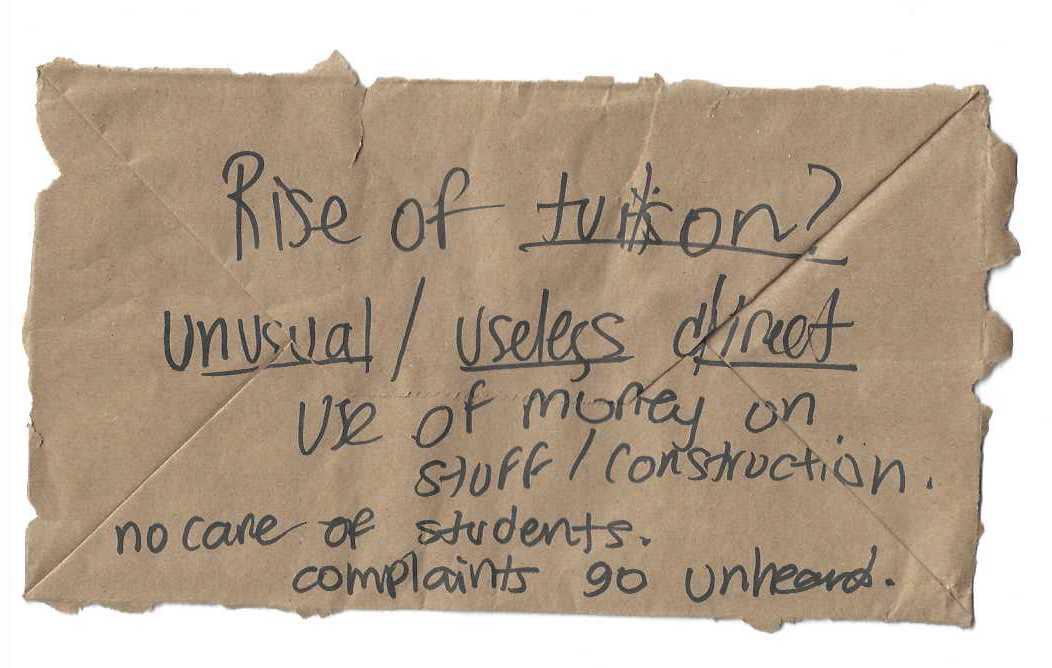 Rise of tuition?
unusual / useless direct
use of money on
stuff / construction.
no care of students.
complaints go unheard.